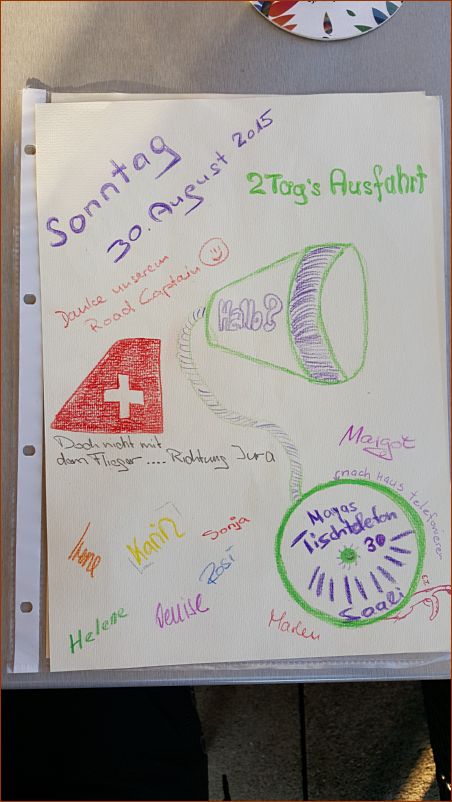 Sonntag
30. August 2015
2Tag's Ausfahrt
Danke unserem
Road Captain
Hallo?
Doch nicht mit
dem Flieger .... Richtung Jura
Margot
nach haus telefonieren
Mayas
Tischtelefon
30
Saali
Irene
Karin
Sonja
Rosi
Helene
Denise
Marlen